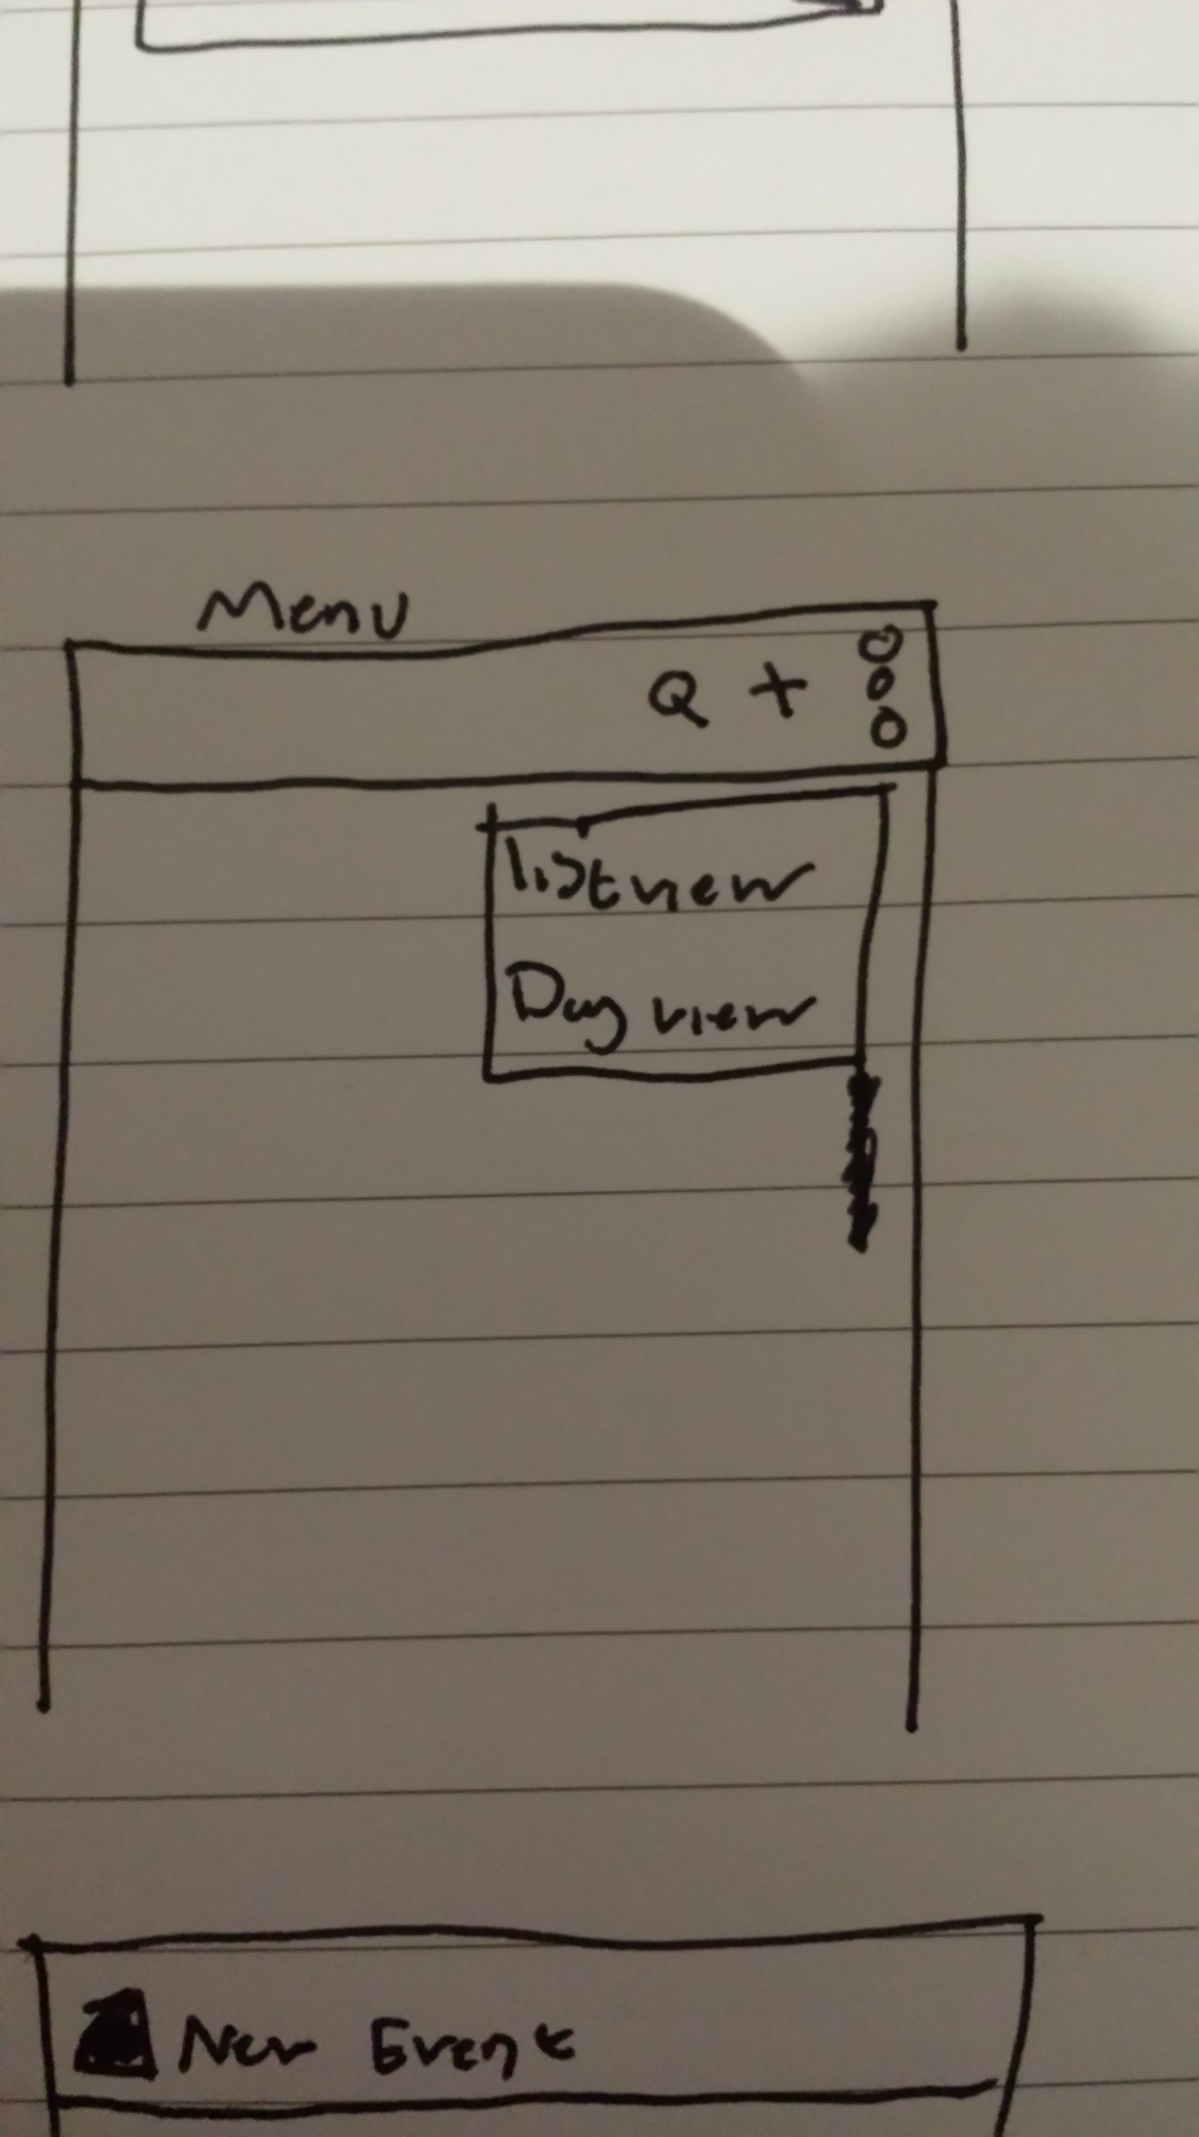 Menu
Q +
listview
Day view
New Event